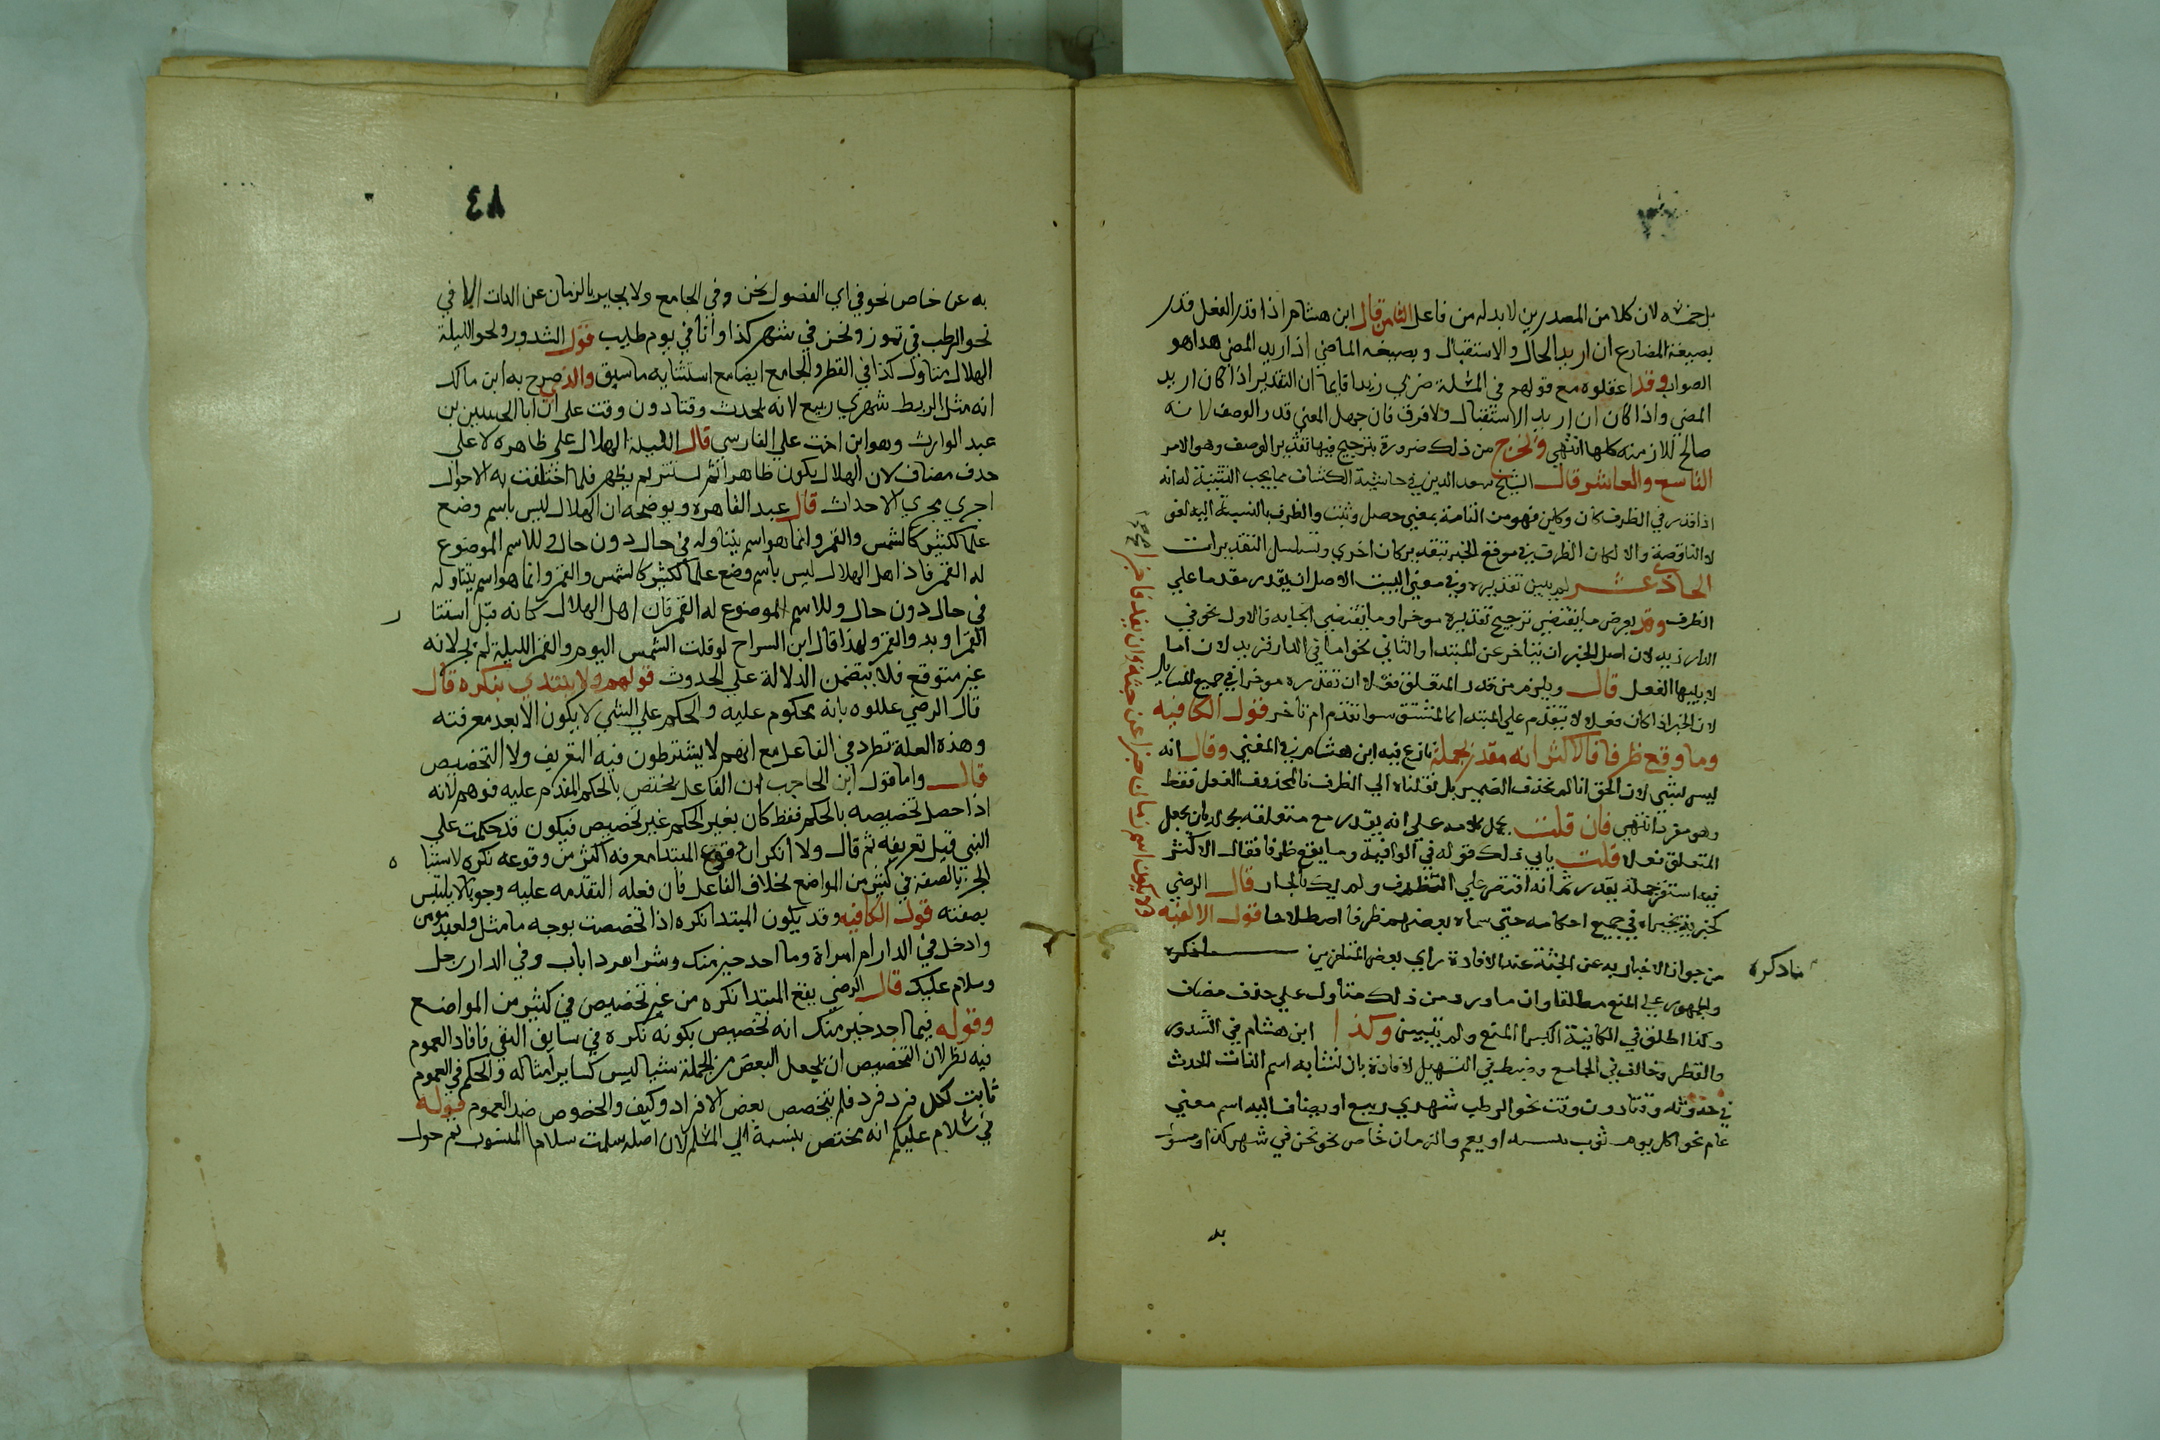 بل خمسة لان كلا من المصدرين لا بد له من فاعل الثامن قال ابن هشام اذا قدر الفعل قدر
بصيغة المضارع ان اريد الحال والاستقبال وبصيغة الماضي اذا اريد المضي هذا هو
الصواب وقد اغفلوه مع قولهم في امثلة ضربي زيدا قايما ان التقدير اذا كان اريد
المضي واذا كان ان اريد الاستقبال ولا فرق فان جهل المعني قدر الوصف لانه
صالح للازمنة كلها انتهي وخرج من ذلك ضرورة بترجيح فيها تقدير الوصف وهو الامر
التاسع والعاشر قال الشيخ سعد الدين في حاشية الكشاف مما يجب التنبيه له انه
اذا قدر في الظرف كان وكاين فهو من التامة بمعني حصل وثبت والظرف بالنسبة اليه لغو
لا الناقصة والا لكان الظرف في موقع الخبر بتقدير كان اخري وتسلسل التقديرات
الحادي عشر لم يبين تقديره وفي مغني البيت الاصل ان يقدر مقدما علي
الظرف وقد يعرض ما يقتضي ترجيح تقديره موخرا وما يقتضي ايجابه فالاول نحو في
الدار زيد لان اصل الخبر ان يتاخر عن المبتدا والثاني نحو اما في الدار فزيد لان اما
لا يليها الفعل قال ويلزم من قدر المتعلق فعلا ان تقدره موخرا في جميع المسايل
لان الخبر اذا كان فعلا لا يتقدم علي المبتدا كالمشتق سوا تقدم ام تاخر قول الكافيه
وما وقع ظرفا فالاكثر انه مقدر بجملة نازع فيه ابن هشام في المغني وقال انه
ليس بشي لان الحق انا لم نحذف الضمير بل نقلناه الي الظرف فالمحذوف الفعل فقط
وهو مفرد انتهي فان قلت يحمل كلامه علي انه يقدر مع متعلقه بجملة بان يجعل
المتعلق فعلا قلت يابي ذلك قوله في الوافية وما يقع ظرفا فقال الاكثر
فيه استقر جملة يقدر ثم انه اقتصر علي الظرف ولم يذكر الجار قال الرضي
لجريه مجراه في جميع احكامه حتي سماه بعضهم ظرفا اصطلاحا قول الالفيه
من جواز الاخبار به عن الجثة عند الافادة راي بعض المتاخرين ما ذكره
ما ذكره
والجمهور علي المنع مطلقا وان ما ورد من ذلك متاول علي حذف مضاف
وكذا اطلق في الكافية الكبرا المنع ولم يتبين وكذا ابن هشام في الشذور
والقطر وخالف في الجامع وضبط في التسهيل الافادة بان تشابه اسم الذات الحدث
في حدوثه وقتا دون وقت نحو الرطب شهري ربيع او يضاف اليه اسم معني
عام نحو اكل يوم ثوب تلبسه او يعم والزمان خاص نحو نحن في شهر كذا او مسول
به
ولا يكون اسم زمان خبرا عن جثة وان يفد فاخبرا
٤٨
به عن خاص نحو في اي الفصول نحن وفي الجامع ولا يخبر بالزمان عن الذات الا في
نحو الرطب في تموز ونحن في شهر كذا وانا في يوم طيب قول الشذور ونحو الليلة
الهلال متاول كذا في القطر والجامع ايضا مع استثنايه ما سبق والذي صرح به ابن مالك
انه مثل الرطب شهري ربيع لانه لحدث وقتا دون وقت علي ان ابا الحسين بن
عبد الوارث وهو ابن اخت علي الفارسي قال الليلة الهلال علي ظاهره لا علي
حذف مضاف لان الهلال يكون ظاهرا ثم يستتر ثم يظهر فلما اختلفت به الاحوال
اجري مجري الاحداث قال عبد القاهر ويوضحه ان الهلال ليس باسم وضع
علما لكثير كالشمس والقمر وانما هو اسم يتناوله في حال دون حال للاسم الموضوع
له القمر فاذا هل الهلال ليس باسم وضع علما لكثير كالشمس والقمر وانما هو اسم يتناوله
في حال دون حال وللاسم الموضوع له القمر فان اهل الهلال كانه قيل استنا
القمر او بد والقمر ولهذا قال ابن السراج لو قلت الشمس اليوم والقمر الليلة لم يجز لانه
غير متوقع فلا يتضمن الدلالة علي الحدوث قولهم ولا يبتدي بنكره قال
قال الرضي عللوه بانه محكوم عليه والحكم علي الشي لا يكون الا بعد معرفته
وهذه العلة تطرد في الفاعل مع انهم لا يشترطون فيه التعريف ولا التخصيص
قال واما قول ابن الحاجب ان الفاعل يختص بالحكم المقدم عليه فوهم لانه
اذا حصل تخصيصه بالحكم فقط كان بغير الحكم غير تخصيص فيكون قد حكمت علي
الشي قبل تعريفه ثم قال ولا انكر ان وقوع المبتدا معرفه اكثر من وقوعه نكره لاشتبا
الخبر بالصفة في كثير من المواضع بخلاف الفاعل فان فعله التقدمه عليه وجوبا لا يلتبس
بصفته قول الكافيه وقد يكون المبتدا نكره اذا تخصصت بوجه ما مثل ولعبد مومن
وادخل في الدار ام امراة وما احد خير منك وشر اهر ذا ناب وفي الدار رجل
وسلام عليك قال الرضي يقع المبتدا نكره من غير تخصيص في كثير من المواضع
وقوله فيما احد خير منك انه تخصيص بكونه نكره في سياق النفي فافاد العموم
فيه نظر لان التخصيص ان يجعل البعض من الجملة شيا ليس كساير امثاله والحكم في العموم
ثابت لكل فرد فرد فلم يتخصص بعض الافراد وكيف والخصوص ضد العموم قوله
في سلام عليكم انه يختص بنسبة الي المسلم لان اصله سلمت سلاما المنسوب نعم حول